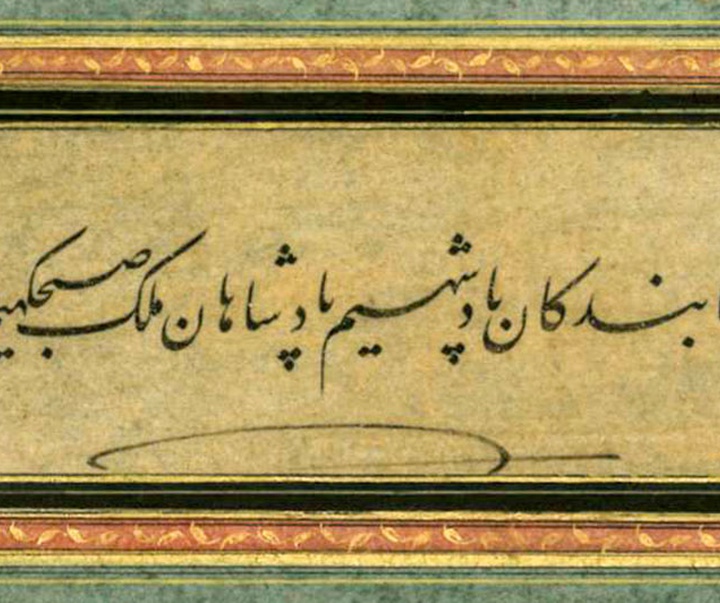 ا بندکان پادشهیم پادشاهان ملک صبحکهیم